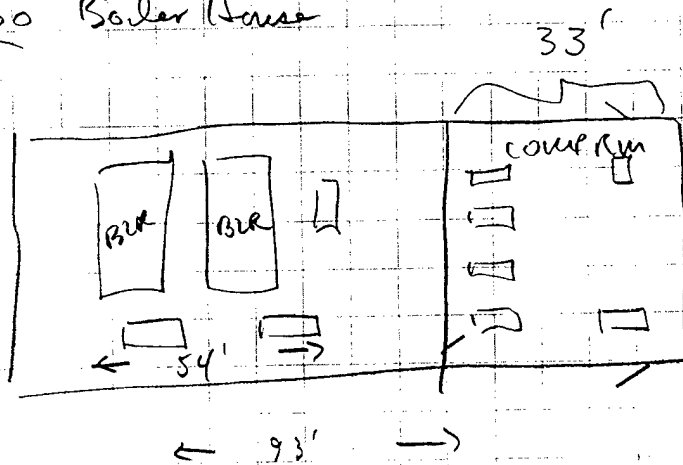 Boiler House
33'
COMP RM
BLR BLR
54'
93'